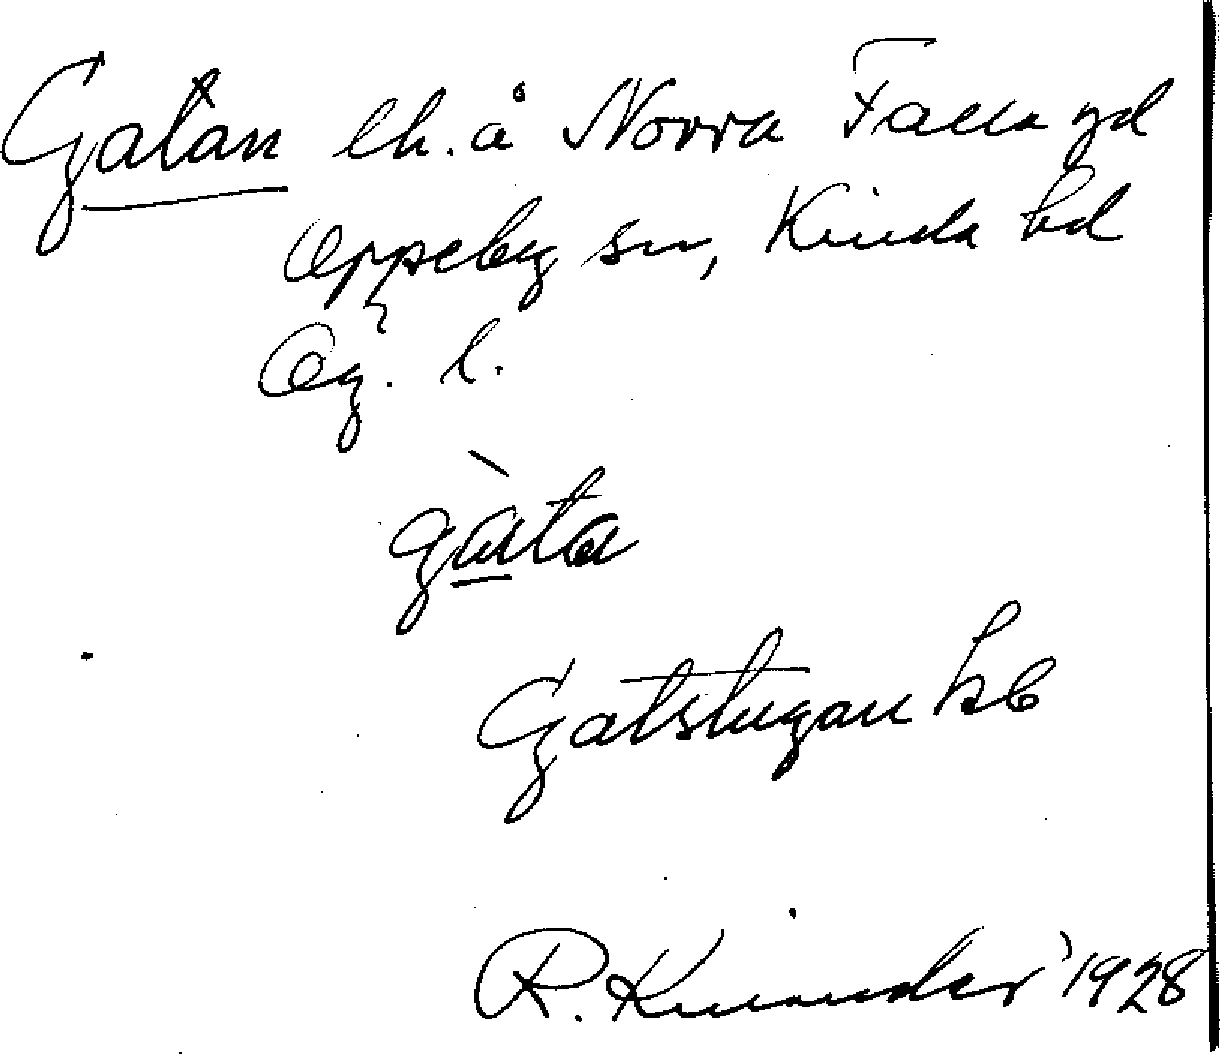 Gatan lh. å Norra Falla gd
Oppeby sn, Kinda hd
Ög. l.
gàta
Gatstugan
R. Kinander 1928